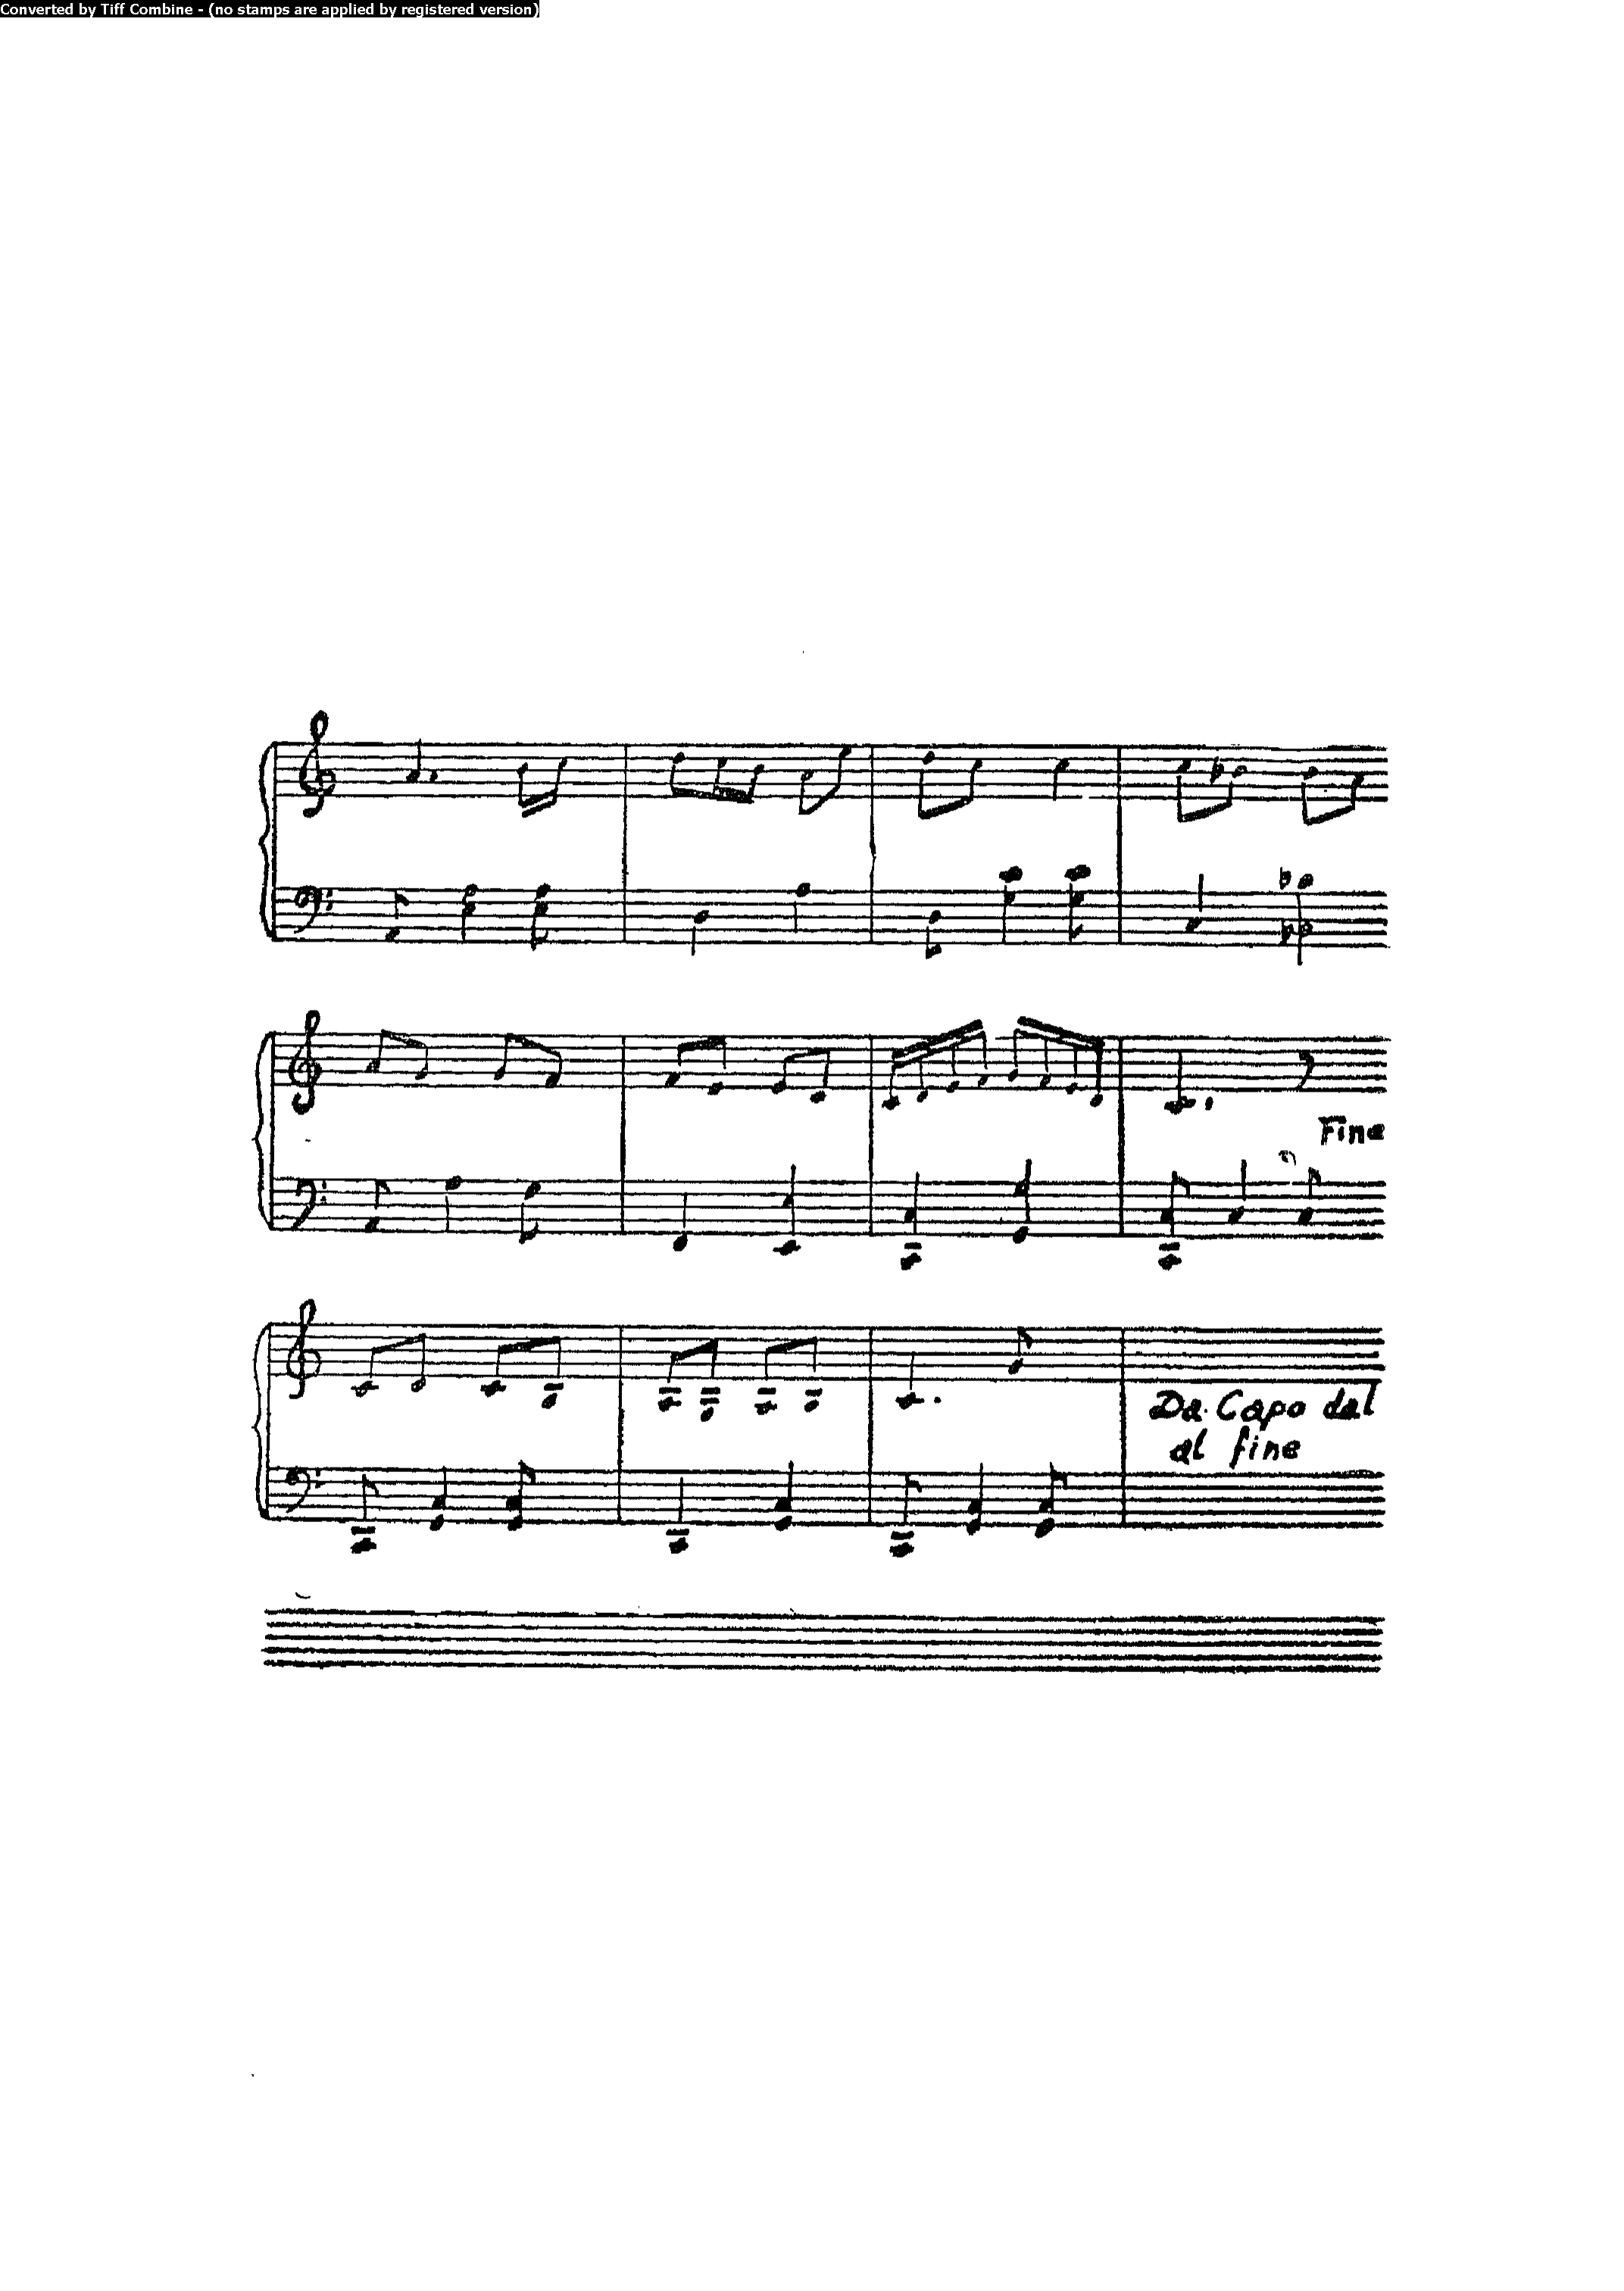 Converted by Tiff Combine - (no stamps are applied by registered version)
Fine
Da Capo dal
al fine